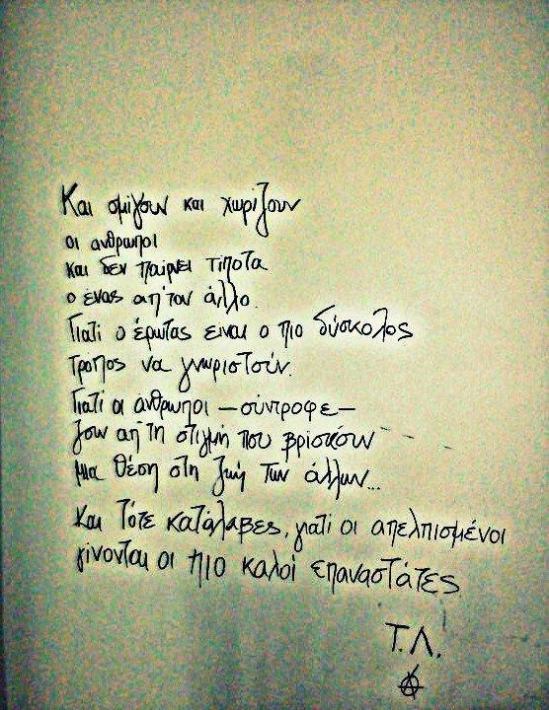 Και σμίγουν και χωρίζουν
οι ανθρωποι
και δεν παίρνει τίποτα
ο ένας απ' τον άλλο.
Γιατί ο έρωτας ειναι ο πιο δύσκολος
τροπος να γνωριστούν.
Γιατί οι ανθρωποι – σύντροφε –
ζουν απ' τη στιγμή που βρίσκουν
μια θέση στη ζωή των άλλων...
Και τότε κατάλαβες, γιατί οι απελπισμένοι
γίνονται οι πιο καλοί επαναστάτες
Τ.Λ.